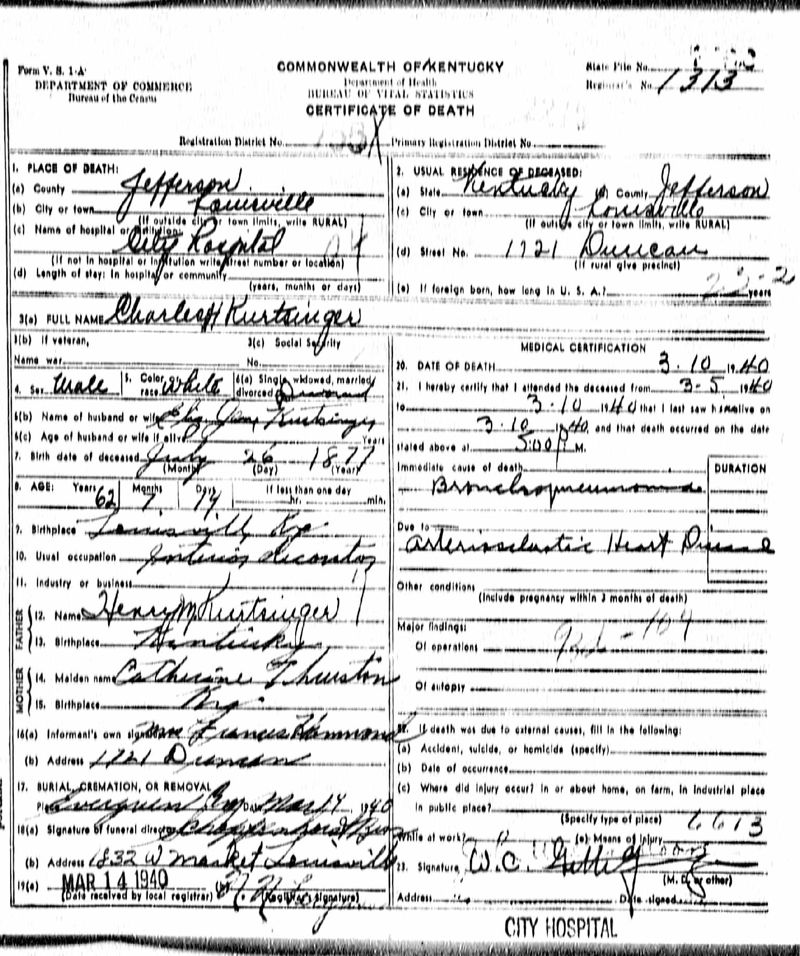 Form V. S. 1-A
DEPARTMENT OF COMMERCE
Bureau of the Census
COMMONWEALTH OF KENTUCKY
Department of Health
BUREAU OF VITAL STATISTICS
CERTIFICATE OF DEATH
State File No.
Registrar's No. 1313
Registration District No. Primary Registration District No.
1. PLACE OF DEATH:
(a) County Jefferson
(b) City or town Louisville
(If outside city or town limits, write RURAL)
(c) Name of hospital or institution:
City Hospital
(If not in hospital or institution write street number or location)
(d) Length of stay: In hospital or community
(years, months or days)
2. USUAL RESIDENCE OF DECEASED:
(a) State Kentucky (b) County Jefferson
(c) City or town Louisville
(If outside city or town limits, write RURAL)
(d) Street No. 1721 Duncan
(If rural give precinct)
(e) If foreign born, how long in U. S. A.? years
3(a) FULL NAME Charles H Kurtsinger
3(b) If veteran, 3(c) Social Security
Name war No.
4. Sex Male 5. Color or race White 6(a) Single, widowed, married, divorced Divorced
6(b) Name of husband or wife Kurtsinger
6(c) Age of husband or wife if alive Years
7. Birth date of deceased July 26 1877
(Month) (Day) (Year)
8. AGE: Years Months Days If less than one day
62 7 14 hr. min.
9. Birthplace Louisville Ky
10. Usual occupation Interior Decorator
11. Industry or business
FATHER
12. Name Henry M Kurtsinger
13. Birthplace Kentucky
MOTHER
14. Maiden name Catherine Thurston
15. Birthplace Ky
16(a) Informant's own signature Mrs Francis Hammond
(b) Address 1721 Duncan
17. BURIAL, CREMATION, OR REMOVAL
Place Evergreen Cem Date Mar 14 1940
18(a) Signature of funeral director
(b) Address 1832 W Market Louisville
19(a) MAR 14 1940 (b)
(Date received by local registrar) (Registrar's signature)
MEDICAL CERTIFICATION
20. DATE OF DEATH 3-10 1940
21. I hereby certify that I attended the deceased from 3-5 1940
to 3-10 1940 that I last saw him alive on
3-10 1940, and that death occurred on the date
stated above at 5:00 P M.
Immediate cause of death DURATION
Bronchopneumonia
Due to
Arteriosclerotic Heart Disease
Other conditions
(Include pregnancy within 3 months of death)
Major findings:
Of operations
Of autopsy
22. If death was due to external causes, fill in the following:
(a) Accident, suicide, or homicide (specify)
(b) Date of occurrence
(c) Where did injury occur? In or about home, on farm, in industrial place
in public place?
(Specify type of place) 6613
While at work? (e) Means of Injury
23. Signature W.C.
(M. D. or other)
Address Date signed
CITY HOSPITAL